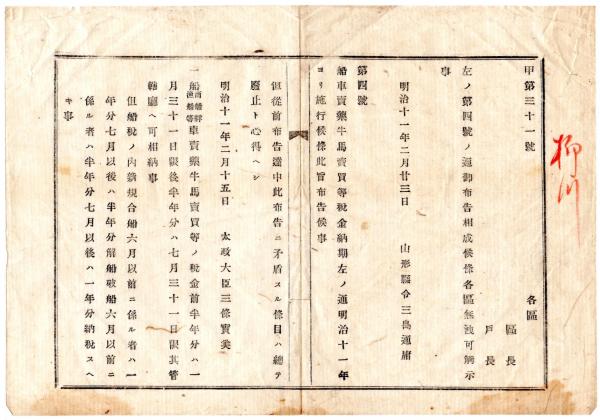 甲第三十一號
各區
區長
戸長
左ノ第四號ノ通御布告相成候條各區無洩可觸示
事
明治十一年二月廿三日 山形縣令三島通庸
第四號
船車賣藥牛馬賣買等税金納期左ノ通明治十一年
ヨリ施行候條此旨布告候事
但從前布告達中此布告ニ矛盾スル條目ハ總テ
廢止ト心得ヘシ
明治十一年二月十五日 太政大臣三條實美
一船商船艀漁船等車賣藥牛馬賣買等ノ税金前半年分ハ一
月三十一日限後半年分ハ七月三十一日限其管
轄廳ヘ可相納事
但船税ノ内鑑規合船六月以前ニ係ル者ハ一
年分七月以後ハ半年分解船破船六月以前ニ
係ル者ハ半年分七月以後ハ一年分納税スヘ
キ事
柳川